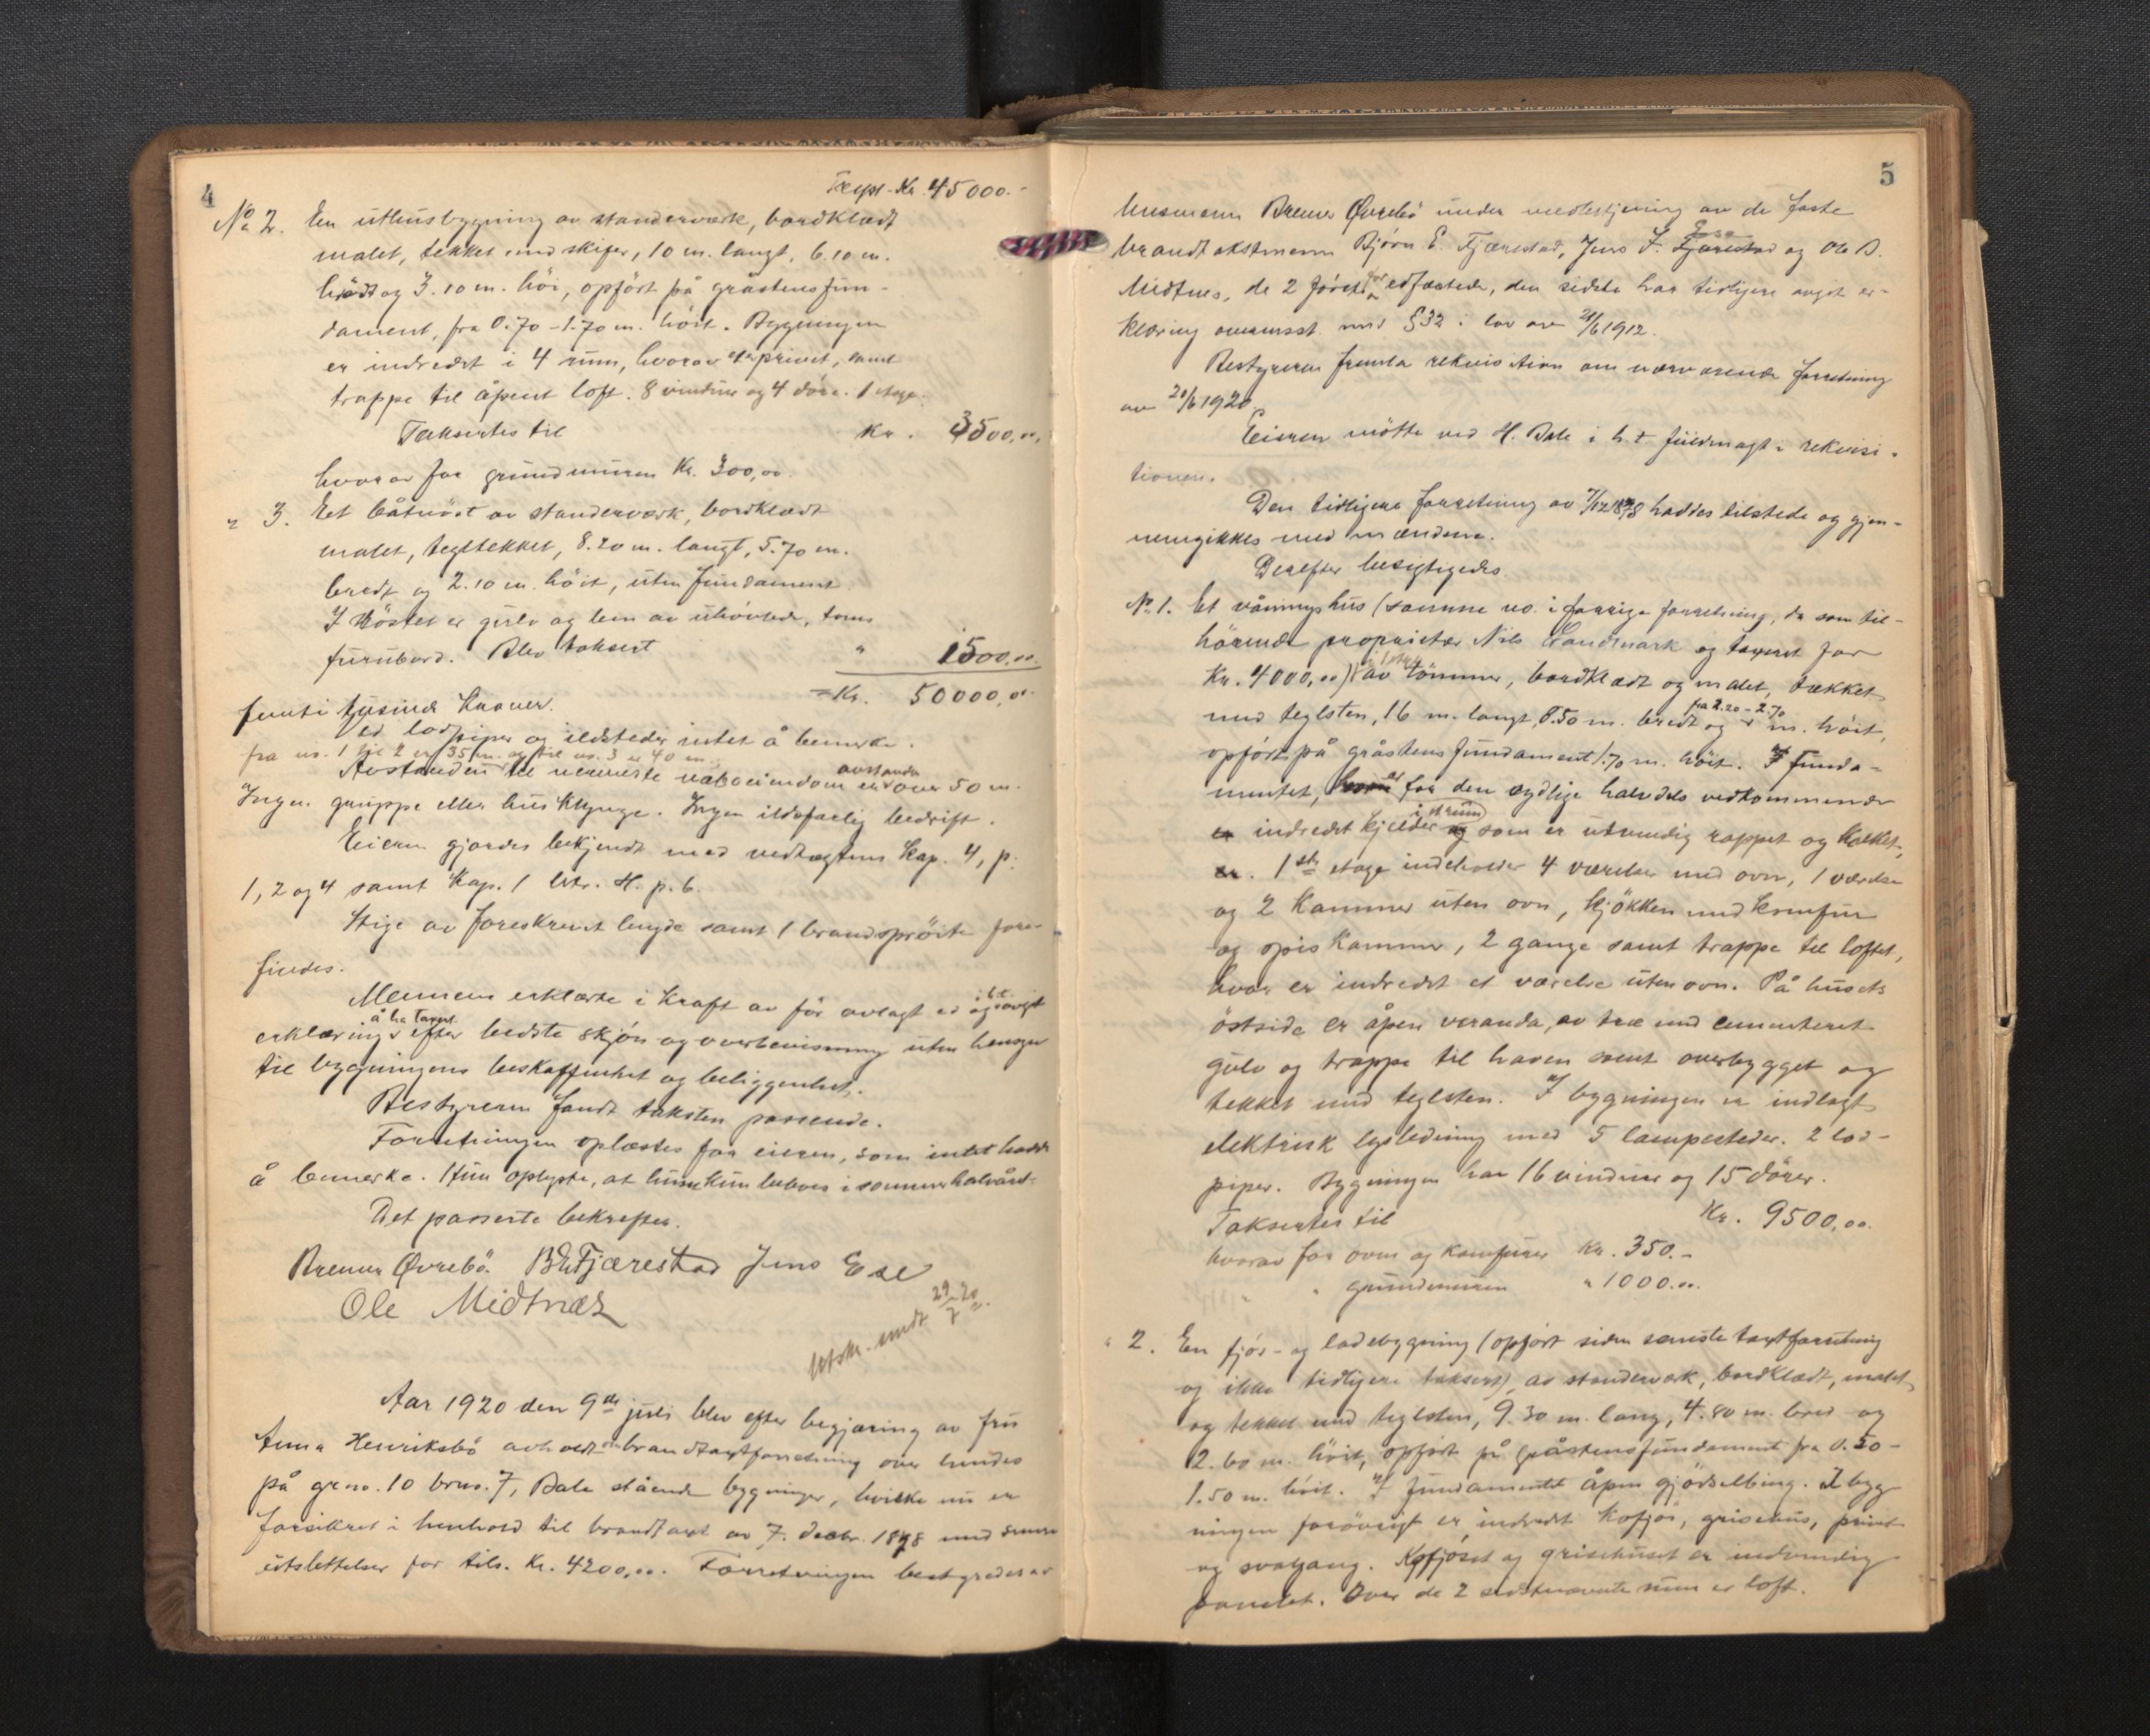 4
Transp. Kr. 45000.-
No 2. En uthusbygning av standerverk, bordklædt
malet, tekket med skifer, 10 m. langt, 6.10 m.
bredt og 3.10 m. höi, opfört på gråstensfun-
dament, fra 0.70 - 1.70 m. höit. Bygningen
er indredet i 4 rum, hvorav et er privet, samt
trappe til åpent loft. 8 vinduer og 4 döre. 1 etage.
Taksertes til Kr. 3500,00,
hvorav for grundmuren Kr. 300,00.
" 3. Et båtnöst av standerværk, bordklædt
malet, tegltekket, 8.20 m. langt, 5.70 m.
bredt og 2.10 m. höit, uten fundament.
I Nöstet er gulv og lem av uhövlede, toms
furubord. Blev taksert " 1500,00.
femti tusind Kroner. = Kr. 50000,00
Ved lodpiper og ildsteder intet å bemerke.
fra no. 1 til 2 er 35 m. og til no. 3 er 40 m.
Avstanden til nærmeste naboeiendom er avstanden over 50 m.
Ingen gruppe eller husklynge. Ingen ildsfarlig bedrift.
Eieren gjordes bekjendt med vedtægtens Kap. 4, p.
1, 2 og 4 samt Kap. 1 litr. H. p. 6.
Stige av foreskrevet lengde samt 1 brandspröite fore-
findes.
Mennene erklærte i kraft av för avlagt ed og avgit
erklæring å ha taxert efter bedste skjön og overbevisning uten hensyn
til bygningens beskaffenhet og beliggenhet.
Bestyreren fandt taksten passende.
Forretningen oplæstes for eieren, som intet hadde
å bemerke. Hun oplyste, at huset kun beboes i sommerhalvåret.
Det passerte bekreftes.
Bremer Øvrebö. B E Fjærestad Jens Ese
Ole Midtnæs
Utskr. sendt 29/7-20.
Aar 1920 den 9de juli blev efter begjæring av fru
Anna Henriksbö avholdt brandtaxtforretning over hendes
på grno. 10 brno. 7, Dale stående bygninger, hvilke nu er
forsikret i henhold til brandtaxt av 7. decbr. 1898 med senere
utslettelser for tils. Kr. 4200,00. Forretningen bestyredes av
5
lensmann Bremer Øvrebö under medbetjening av de faste
brandtakstmenn Björn E. Fjærestad, Jens J. Fjærestad Ese og Ole B.
Midtnes, de 2 först edfæstede, den sidste har tidligere avgit er-
klæring overensst. med § 32 i lov av 21/6 1912.
Bestyreren fremla rekvisition om nærværende forretning
av 20/6 1920.
Eieren mötte ved H. Dale i h. t. fuldmagt i rekvisi-
tionen.
Den tidligere forretning av 7/12 1898 haddes tilstede og gjen-
nemgikkes med mændene.
Derefter besigtigedes.
No. 1. Et våningshus (samme no. i forrige forretning, da som til-
hörende proprietær Nils Landmark og taxeret for
Kr. 4000,00) i 1 etage av tömmer, bordklædt og malet, tækket
med teglsten, 16 m. langt, 8.50 m. bredt og fra 2.20 - 2.70 m. höit,
opfört på gråstens fundament 1.70 m. höit. I funda-
mentet, er for den sydlige halvdels vedkommende
indredet kjelder i et rum som er utvendig rappet og kalket,
1ste etage indeholder 4 værelser med ovn, 1 værelse
og 2 kammer uten ovn, kjökken med komfur
og spiskammer, 2 gange samt trappe til loftet,
hvor er indredet et værelse uten ovn. På husets
östside er åpen veranda, av træ med cementeret
gulv og trappe til haven samt overbygget og
tekket med teglsten. I bygningen er indlagt
elektrisk lysledning med 5 lampesteder. 2 lod-
piper. Bygningen har 16 vinduer og 15 dörer.
Taksertes til Kr. 9500,00.
hvorav for ovner og komfurer Kr. 350.-
" " grundmuren " 1000.00.
" 2. En fjös- og ladebygning (opfört siden seneste taxtforretning
og ikke tidligere taksert), av standerverk, bordklædt, malet
og tekket med teglsten, 9.30 m. lang, 4.80 m. bred og
2.60 m. höit, opfört på gråstensfundament fra 0.50 -
1.50 m. höit. I fundamentet åpen gjödselbing. I byg-
ningen forövrigt er indredet kofjös, grisehus, privet
og svalgang. Kofjöset og grisehuset er indvendig
panelet. Over de 2 sidstnævnte rum er loft.